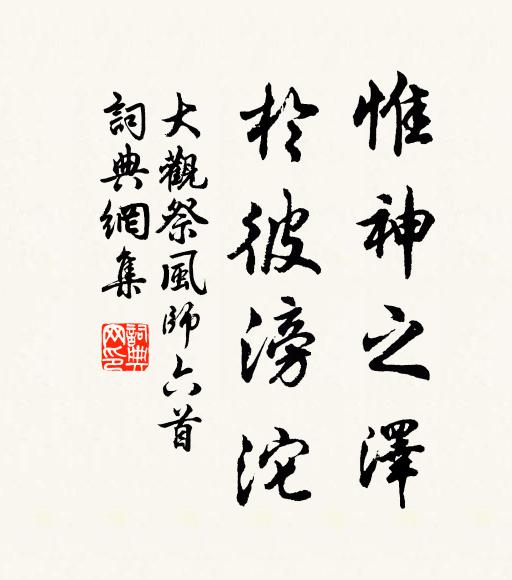 惟神之澤
於彼滂沱
大觀祭風師六首
詞典網集
詞典
网印